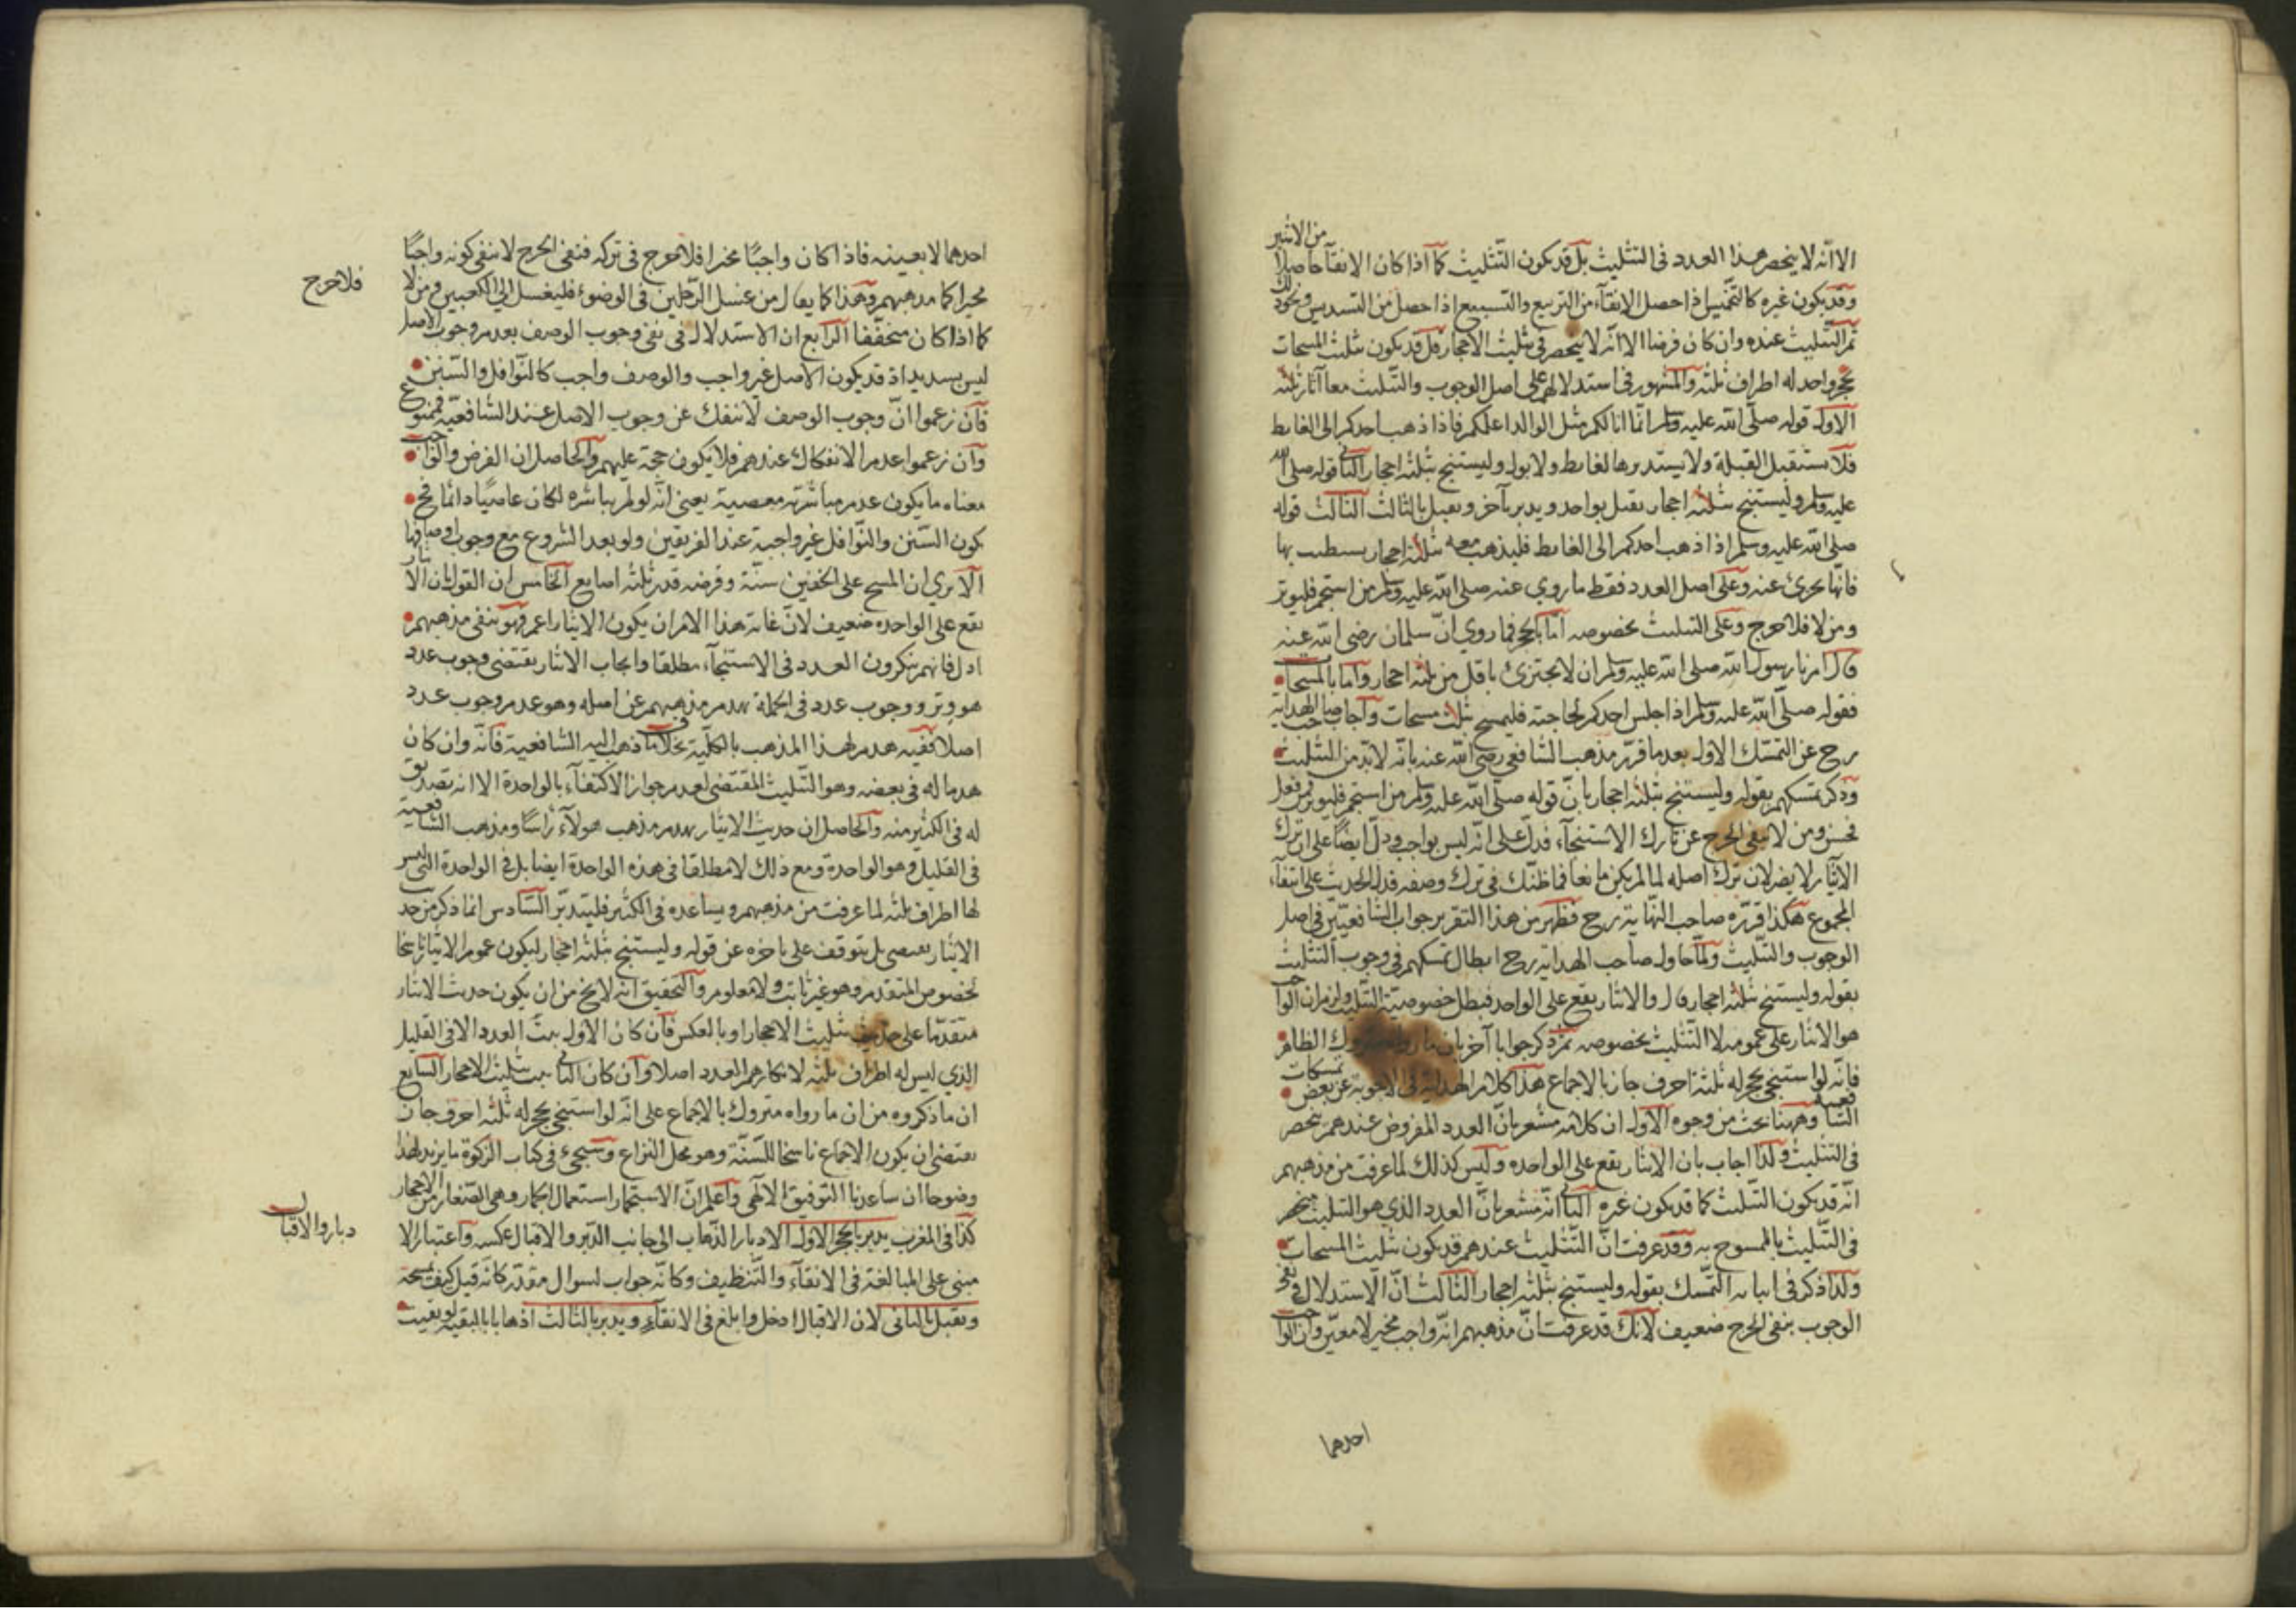 الا انه لا ينحصر هذا العدد فى التثليث بل قد يكون التثليث كما اذا كان الانقاء حاصلا من الاثنين
وقد يكون غيره كالتخميس اذا حصل الانقاء من التربيع والتسبيع اذا حصل من التسديس ونحو ذلك
ثم التثليث عنده وان كان فرضا الا انه لا ينحصر فى تثليث الاحجار بل قد يكون تثليث المسحات
بحجر واحد له اطراف ثلثة والمشهور فى استدلالهم على اصل الوجوب والتثليث معا آثار ثلثة
الاول قوله صلى الله عليه وسلم انما انا لكم مثل الوالد اعلمكم فاذا ذهب احدكم الى الغايط
فلا يستقبل القبلة ولا يستدبرها لغايط ولا بول وليستنج بثلثة احجار الثانى قوله صلى الله
عليه وسلم وليستنج بثلثة احجار يقبل بواحد ويدبر بآخر ويقبل بالثالث الثالث قوله
صلى الله عليه وسلم اذا ذهب احدكم الى الغايط فليذهب معه بثلثة احجار يستطب بها
فانها تجرئ عنه وعلى اصل العدد فقط ما روي عنه صلى الله عليه وسلم من استجمر فليوتر
ومن لا فلا حرج وعلى التثليث بخصوصه اما بالحجر فما روي ان سلمان رضى الله عنه
قال امرنا رسول الله صلى الله عليه وسلم ان لا نجتزئ باقل من ثلثة احجار واما بالمسحات
فقوله صلى الله عليه وسلم اذا جلس احدكم لحاجته فليمسح ثلث مسحات واجاب صاحب الهداية
رح عن التمسك الاول بعد ما قرر مذهب الشافعي رضى الله عنه بانه لا بد من التثليث
وذكر تمسكهم بقوله وليستنج بثلثة احجار بان قوله صلى الله عليه وسلم من استجمر فليوتر فمن فعل
فحسن ومن لا ينفى الحرج عن تارك الاستنجاء فدل على انه ليس بواجب ودل ايضا على ان ترك
الايتار لا يضر لان ترك اصله لما لم يكن مانعا فما ظنك فى ترك وصفه فدل الحديث على انتفاء
المجموع هكذا قرره صاحب النهاية رح فظهر من هذا التقرير جواب الشافعيين فى اصل
الوجوب والتثليث ولما حاول صاحب الهداية رح ابطال تمسكهم فى وجوب التثليث
بقوله وليستنج بثلثة احجار قال والايثار يقع على الواحد فبطل خصوصية التثليث ولزم ان الواجب
هو الايتار على عمومه لا التثليث بخصوصه ثم ذكر جوابا آخر بان ما رواه متروك الظاهر
فانه لو استنجى بحجر له ثلثة احرف جاز بالاجماع هذا كلام الهداية فى الاجوبة عن بعض تمسكات
الشافعية وههنا بحث من وجوه الاول ان كلامه مشعر بان العدد المفروض عندهم ينحصر
فى التثليث ولذا اجاب بان الايتار يقع على الواحده وليس كذلك لما عرفت من مذهبهم
انه قد يكون التثليث كما قد يكون غيره الثانى انه مشعر بان العدد الذي هو التثليث ينحصر
فى التثليث بالممسوح به وقد عرفت ان التثليث عندهم قد يكون تثليث المسحات
ولذا ذكر فى اثباته التمسك بقوله وليستنج بثلثة احجار الثالث ان الاستدلال فى نفى
الوجوب بنفى الحرج ضعيف لانك قد عرفت ان مذهبهم انه واجب مخير لا معين وان الواجب
احدهما
احدهما لا بعينه فاذا كان واجبا مخيرا فلا حرج فى تركه فنفى الحرج لا ينفى كونه واجبا
مخيرا كما مذهبهم وهذا كما يقال من غسل الرجلين فى الوضوء فليغسل الى الكعبين ومن لا
فلا حرج
كما اذا كان متخففا الرابع ان الاستدلال فى نفى وجوب الوصف بعدم وجوب الاصل
ليس بسديد اذ قد يكون الاصل غير واجب والوصف واجب كالنوافل والسنن
فان زعموا ان وجوب الوصف لا ينفك عن وجوب الاصل عند الشافعية فممنوع
وان زعموا عدم الانفكاك عندهم فلا يكون حجة عليهم والحاصل ان الفرض والواجب
معناه ما يكون عدم مباشرته معصية يعنى انه لو لم يباشره لكان عاصيا دائما فح
يكون السنن والنوافل غير واجبة عند الفريقين ولو بعد الشروع مع وجوب اوصافها
الا يري ان المسح على الخفين سنة وفرضه قدر ثلثة اصابع الخامس ان القول بان الايتار
يقع على الواحده ضعيف لان غاية هذا الامر ان يكون الايتار اعم وهو ينفى مذهبهم
اذ فانهم ينكرون العدد فى الاستنجاء مطلقا وايجاب الايتار يقتضى وجوب عدد
هو وتر ووجوب عدد فى الجملة يهدم مذهبهم عن اصله وهو عدم وجوب عدد
اصلا ففيه هدم لهذا المذهب بالكلية بخلاف ما ذهب اليه الشافعية فانه وان كان
هدما له فى بعضه وهو التثليث المقتضى لعدم جواز الاكتفاء بالواحدة الا انه تصديق
له فى الكثير منه والحاصل ان حديث الايتار يهدم مذهب هولاء راسا ومذهب الشافعية
فى القليل وهو الواحدة ومع ذلك لا مطلقا فى هذه الواحدة ايضا بل فى الواحدة التى ليس
لها اطراف ثلثه لما عرفت من مذهبهم ويساعده فى الكثير فليتدبر السادس انما ذكر من حديث
الايتار يتوقف على تاخره عن قوله وليستنج بثلثة احجار ليكون عموم الايتار ناسخا
لخصوص المتقدم وهو غير ثابت ولا معلوم والتحقيق انه لا يخ من ان يكون حديث الايتار
متقدما على حديث تثليث الاحجار او بالعكس فان كان الاول يثبت العدد الا فى القليل
الذي ليس له اطراف ثلثه لانكارهم العدد اصلا وان كان الثانى يثبت تثليث الاحجار السابع
ان ما ذكروه من ان ما رواه متروك بالاجماع على انه لو استنجى بحجر له ثلثة احرف جاز
يقتضى ان يكون الاجماع ناسخا للسنة وهو محل النزاع وسيجئ فى كتاب الزكوة ما يزيد لهذا
وضوحا ان ساعدنا التوفيق الالهى واعلم ان الاستجمار استعمال الجمار وهى الصغار من الاحجار
كذا فى المغرب يدبر بالحجر الاول الادبار الذهاب الى جانب الدبر والاقبال عكسه واعتبار الا
دبار والاقبال
مبنى على المبالغة فى الانقاء والتنظيف وكانه جواب لسوال مقدر كانه قيل كيف يمسحه
ويقبل بالثانى لان الاقبال ادخل وابلغ فى الانقاء ويدبر بالثالث اذهابا بالبقية لو بقيت